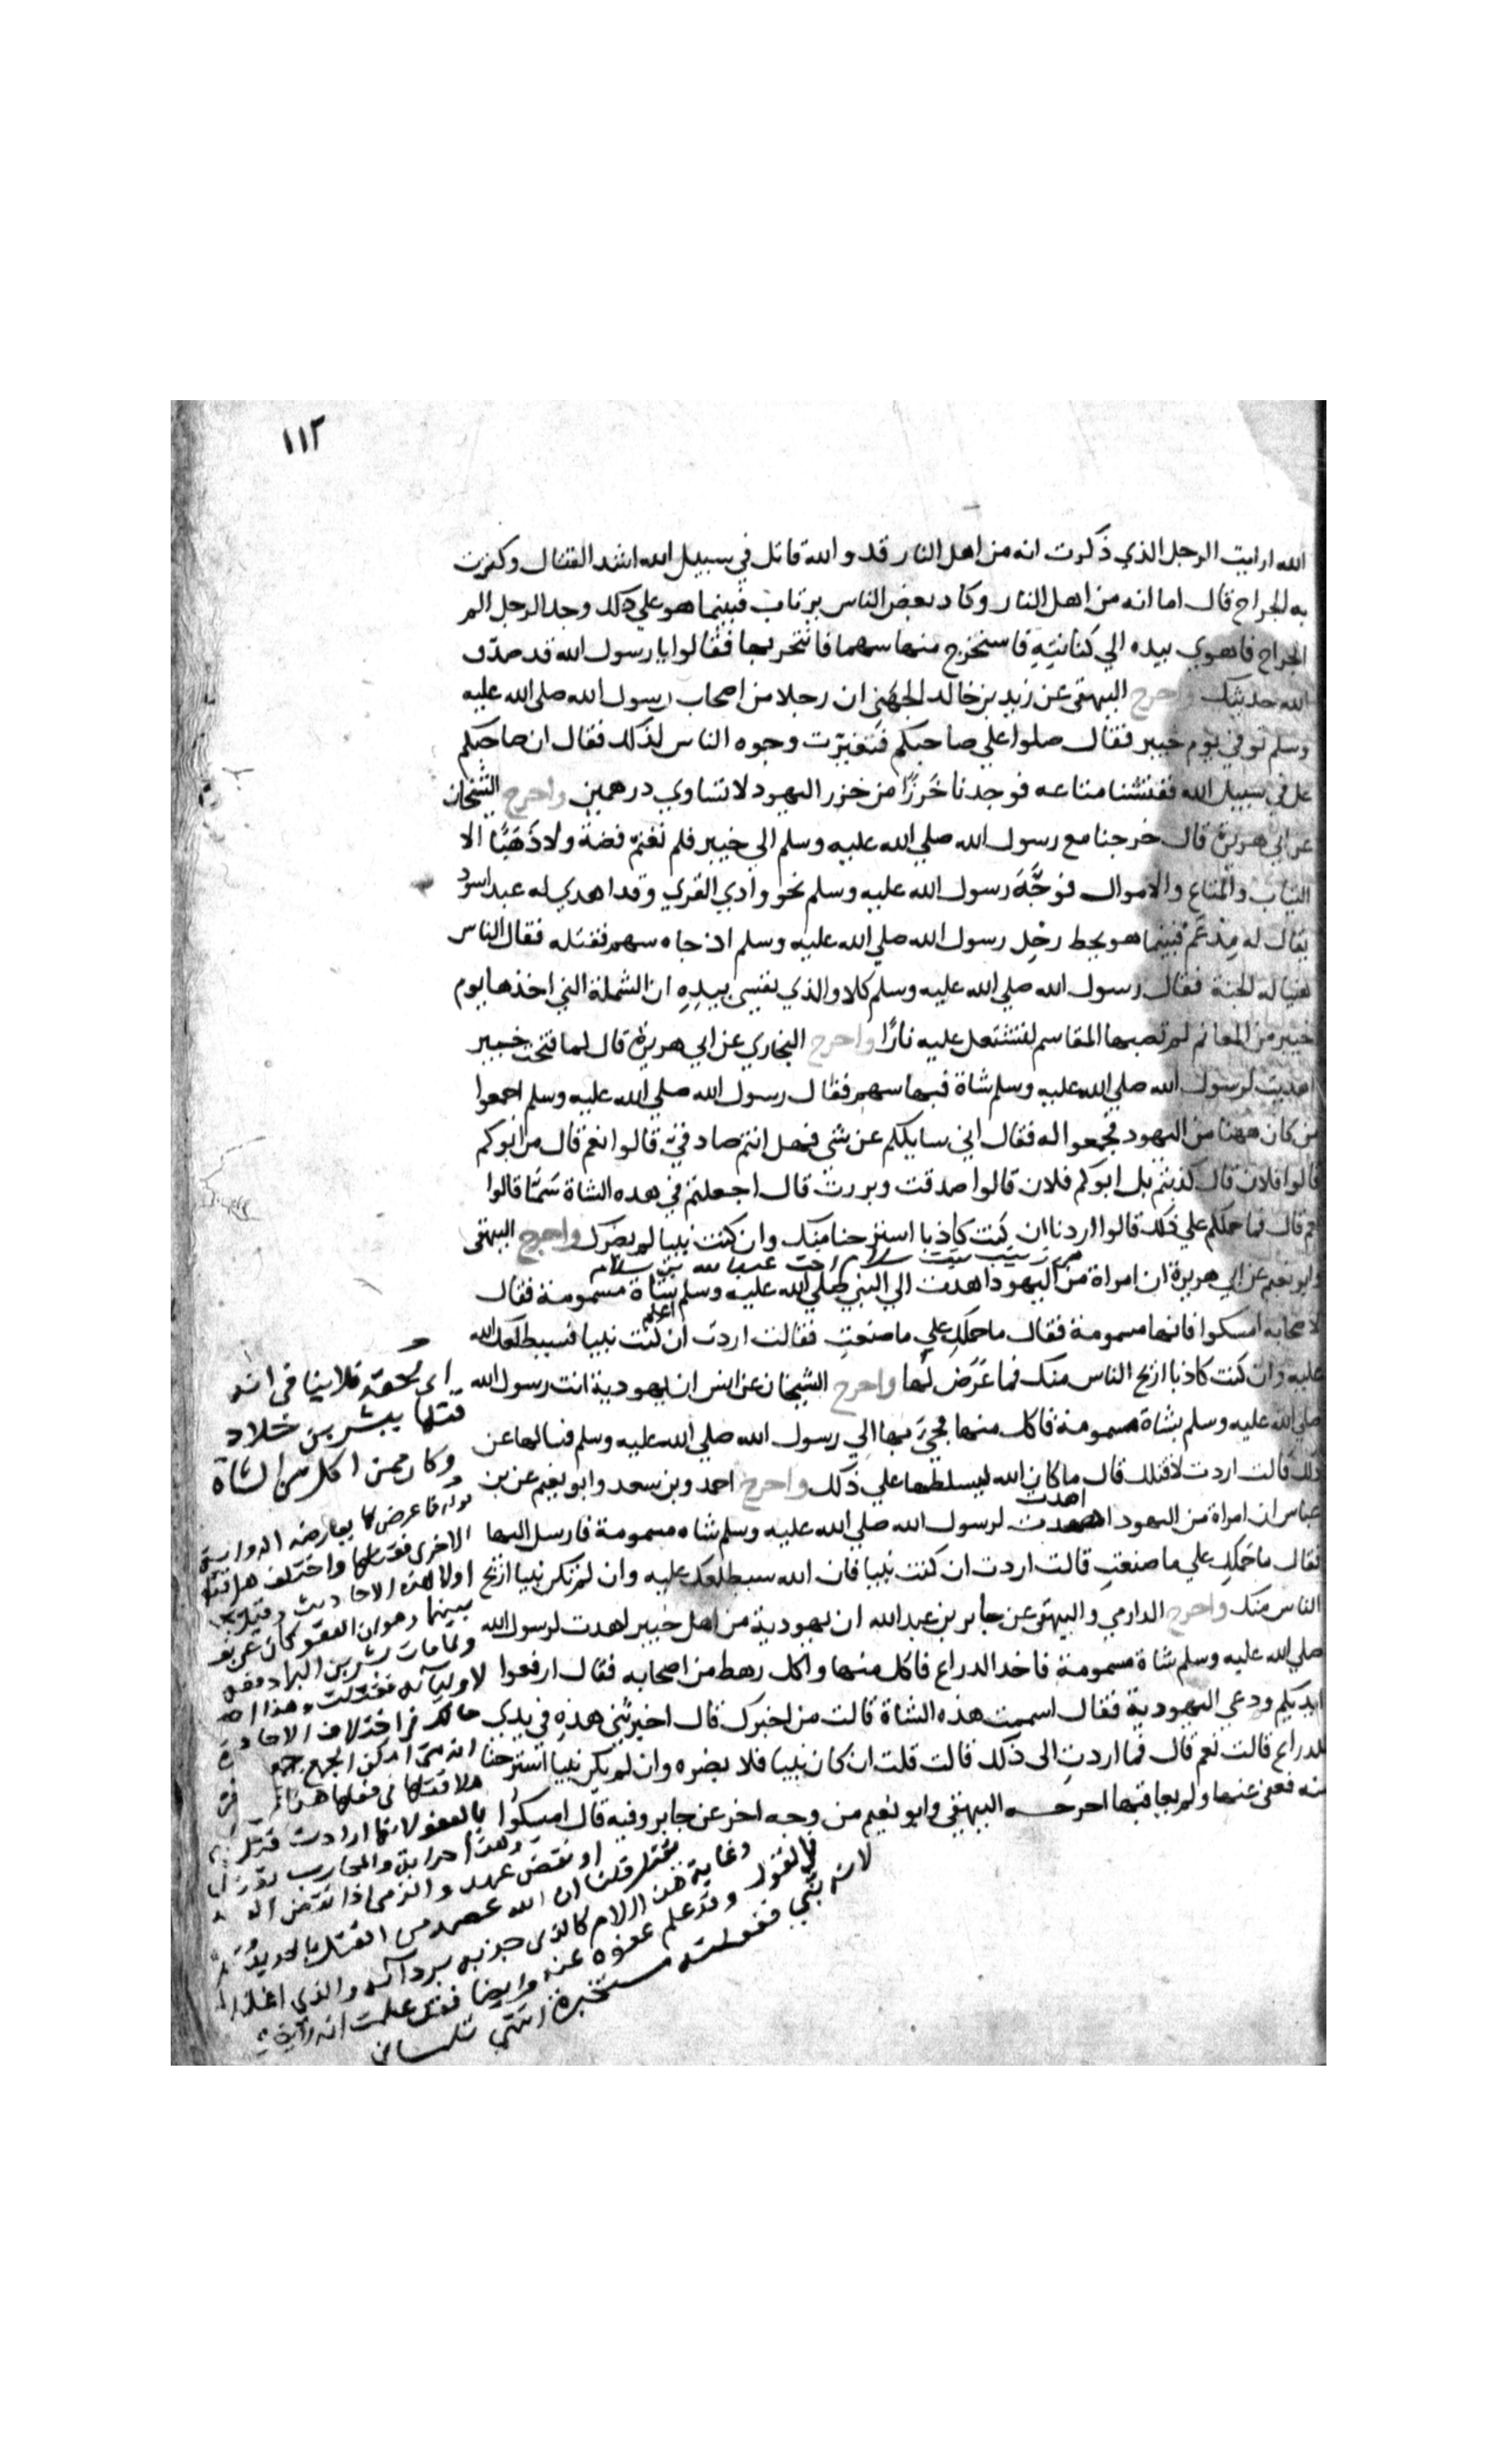 ١١٢
الله ارايت الرجل الذي ذكرت انه من اهل النار قد والله قاتل في سبيل الله اشد القتال وكثرت
به الجراح قال اما انه من اهل النار وكاد بعض الناس يرتاب فبينما هو علي ذلك وجد الرجل الم
الجراح فاهوي بيده الي كنانته فاستخرج منها سهما فانتحر بها فقالوا يا رسول الله قد صدق
الله حديثك واخرج البيهقي عن زيد بن خالد الجهني ان رجلا من اصحاب رسول الله صلي الله عليه
وسلم توفي يوم خيبر فقال صلوا علي صاحبكم فتغيرت وجوه الناس لذلك فقال ان صاحبكم
غل في سبيل الله ففتشنا متاعه فوجدنا خَرزًا من خزر اليهود لا تساوي درهمين واخرج الشيخان
عن ابي هريرة قال خرجنا مع رسول الله صلي الله عليه وسلم الي خيبر فلم نغنم فضة ولا ذَهَبًا الا
الثياب والمتاع والاموال فوجَّهَ رسول الله عليه وسلم نحو وادي القري وقد اهدي له عبد اسود
يقال له مِدْعَم فبينما هو يحط رحل رسول الله صلي الله عليه وسلم اذ جاه سهم فقتله فقال الناس
هنيا له الجنة فقال رسول الله صلي الله عليه وسلم كلا والذي نفسي بيدِهِ ان الشملة التي اخذها يوم
خيبر من المغانم لم تصبها المقاسم لتشتعل عليه نارًا واخرج البخاري عن ابي هريرة قال لما فتحت خيبر
اهديت لرسول الله صلي الله عليه وسلم شاة فيها سهم فقال رسول الله صلي الله عليه وسلم اجمعوا
من كان ههنا من اليهود فجمعوا له فقال اني سايلكم عن شي فهل انتم صادقيّ قالوا نعم قال من ابوكم
قالوا فلان قال كذبتم بل ابوكم فلان قالوا صدقت وبررت قال اجعلتم في هذه الشاة سَمًّا قالوا
نعم قال فما حملكم علي ذلك قالوا اردنا ان كنت كاذبا استرحنا منك وان كنت نبيا لم يضرك واخرج البيهقي
هي زينب بنت سلام اخت عبد الله بن سلام
وابو نعيم عن ابي هريرة ان امراة من اليهود اهدت الي النبي صلي الله عليه وسلم بشاة مسمومة فقال
لاصحابه امسكوا فانها مسمومة فقال ما حملكِ علي ما صنعتِ فقالت اردت اعلم ان كنت نبيا فسيطلعك الله
عليه وان كنت كاذبا اريح الناس منك فما عَرَضَ لها واخرج الشيخان عن انس ان يهودية اتت رسول الله
صلي الله عليه وسلم بشاة مسمومة فاكل منها فجيَ بها الي رسول الله صلي الله عليه وسلم فسالها عن
ذلك قالت اردت لاقتلك قال ما كان الله ليسلطها علي ذلك واخرج احمد وبن سعد وابو نعيم عن بن
عباس ان امراة من اليهود اهدت لرسول الله صلي الله عليه وسلم شاه مسمومة فارسل اليها
فقال ما حَملكِ علي ما صنعتِ قالت اردت ان كنت نبيا فان الله سيطلعك عليه وان لم تكن نبيا اريح
الناس منك واخرج الدارمي والبيهقي عن جابر بن عبد الله ان يهودية من اهل خيبر اهدت لرسول الله
صلي الله عليه وسلم شاة مسمومة فاخد الدراع فاكل منها واكل رهط من اصحابه فقال ارفعوا
ايديكم ودعي اليهودية فقال اسميت هذه الشاة قالت من اخبرك قال اخبرتني هذهِ في يدي
للدراع قالت نعم قال فما اردتِ الى ذلك قالت قلت ان كان نبيا فلا يضره وان لم يكن نبيا استرحنا
منه فعفى عنها ولم يعاقبها اخرجه البيهقي وابو نعيم من وجه اخر عن جابر وفيه قال امسِكُوا
اي بحقه فلا ينافي انه
قتلها ببشر بن خلاد
وكان ممن اكل من الشاة
قوله فما عرض لها يعارضه الرواية
الاخرى فقتلها واختلف هل قتلها
اولا هذه الاحاديث
بينهما وهو ان العفو كان عن
ولما مات بشر بن البراء دفعها
لاوليائه فقتلت وهذا
من اختلاف الاحاديث
بالعفو لانها ارادت قتل
والمحارب
او نقض عهد والذمي اذا نقض
قلنا ان الله عصمه من القتل
وغاية هذا الكلام كالذي
بالقتل وقد علم عفوه عنه وايضا فقد علمت انه
لانه نبي
انتهى تلمساني